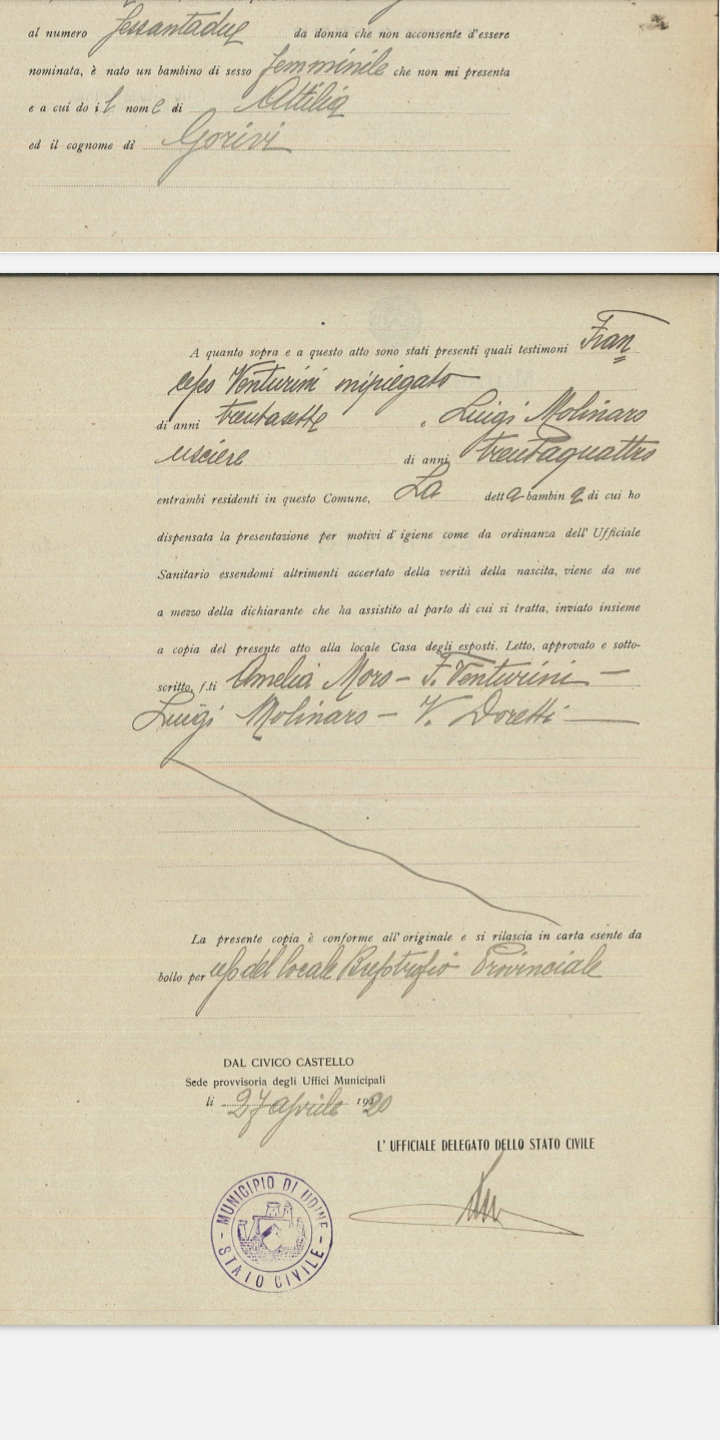 al numero sessantadue da donna che non acconsente d'essere
nominata, è nato un bambino di sesso femminile che non mi presenta
e a cui do il nome di Attilia
ed il cognome di Gorivi
A quanto sopra e a questo atto sono stati presenti quali testimoni Fran
cesco Venturini impiegato
di anni trentasette e Luigi Molinaro
usciere di anni trentaquattro
entrambi residenti in questo Comune, La detta bambina di cui ho
dispensata la presentazione per motivi d'igiene come da ordinanza dell' Ufficiale
Sanitario essendomi altrimenti accertato della verità della nascita, viene da me
a mezzo della dichiarante che ha assistito al parto di cui si tratta, inviato insieme
a copia del presente atto alla locale Casa degli esposti. Letto, approvato e sotto-
scritto, f.ti Amelia Moro - F. Venturini -
Luigi Molinaro - V. Doretti
La presente copia è conforme all'originale e si rilascia in carta esente da
bollo per uso del locale Brefotrofio Provinciale
DAL CIVICO CASTELLO
Sede provvisoria degli Uffici Municipali
li 27 aprile 1920
L' UFFICIALE DELEGATO DELLO STATO CIVILE
- MUNICIPIO DI UDINE -
STATO CIVILE